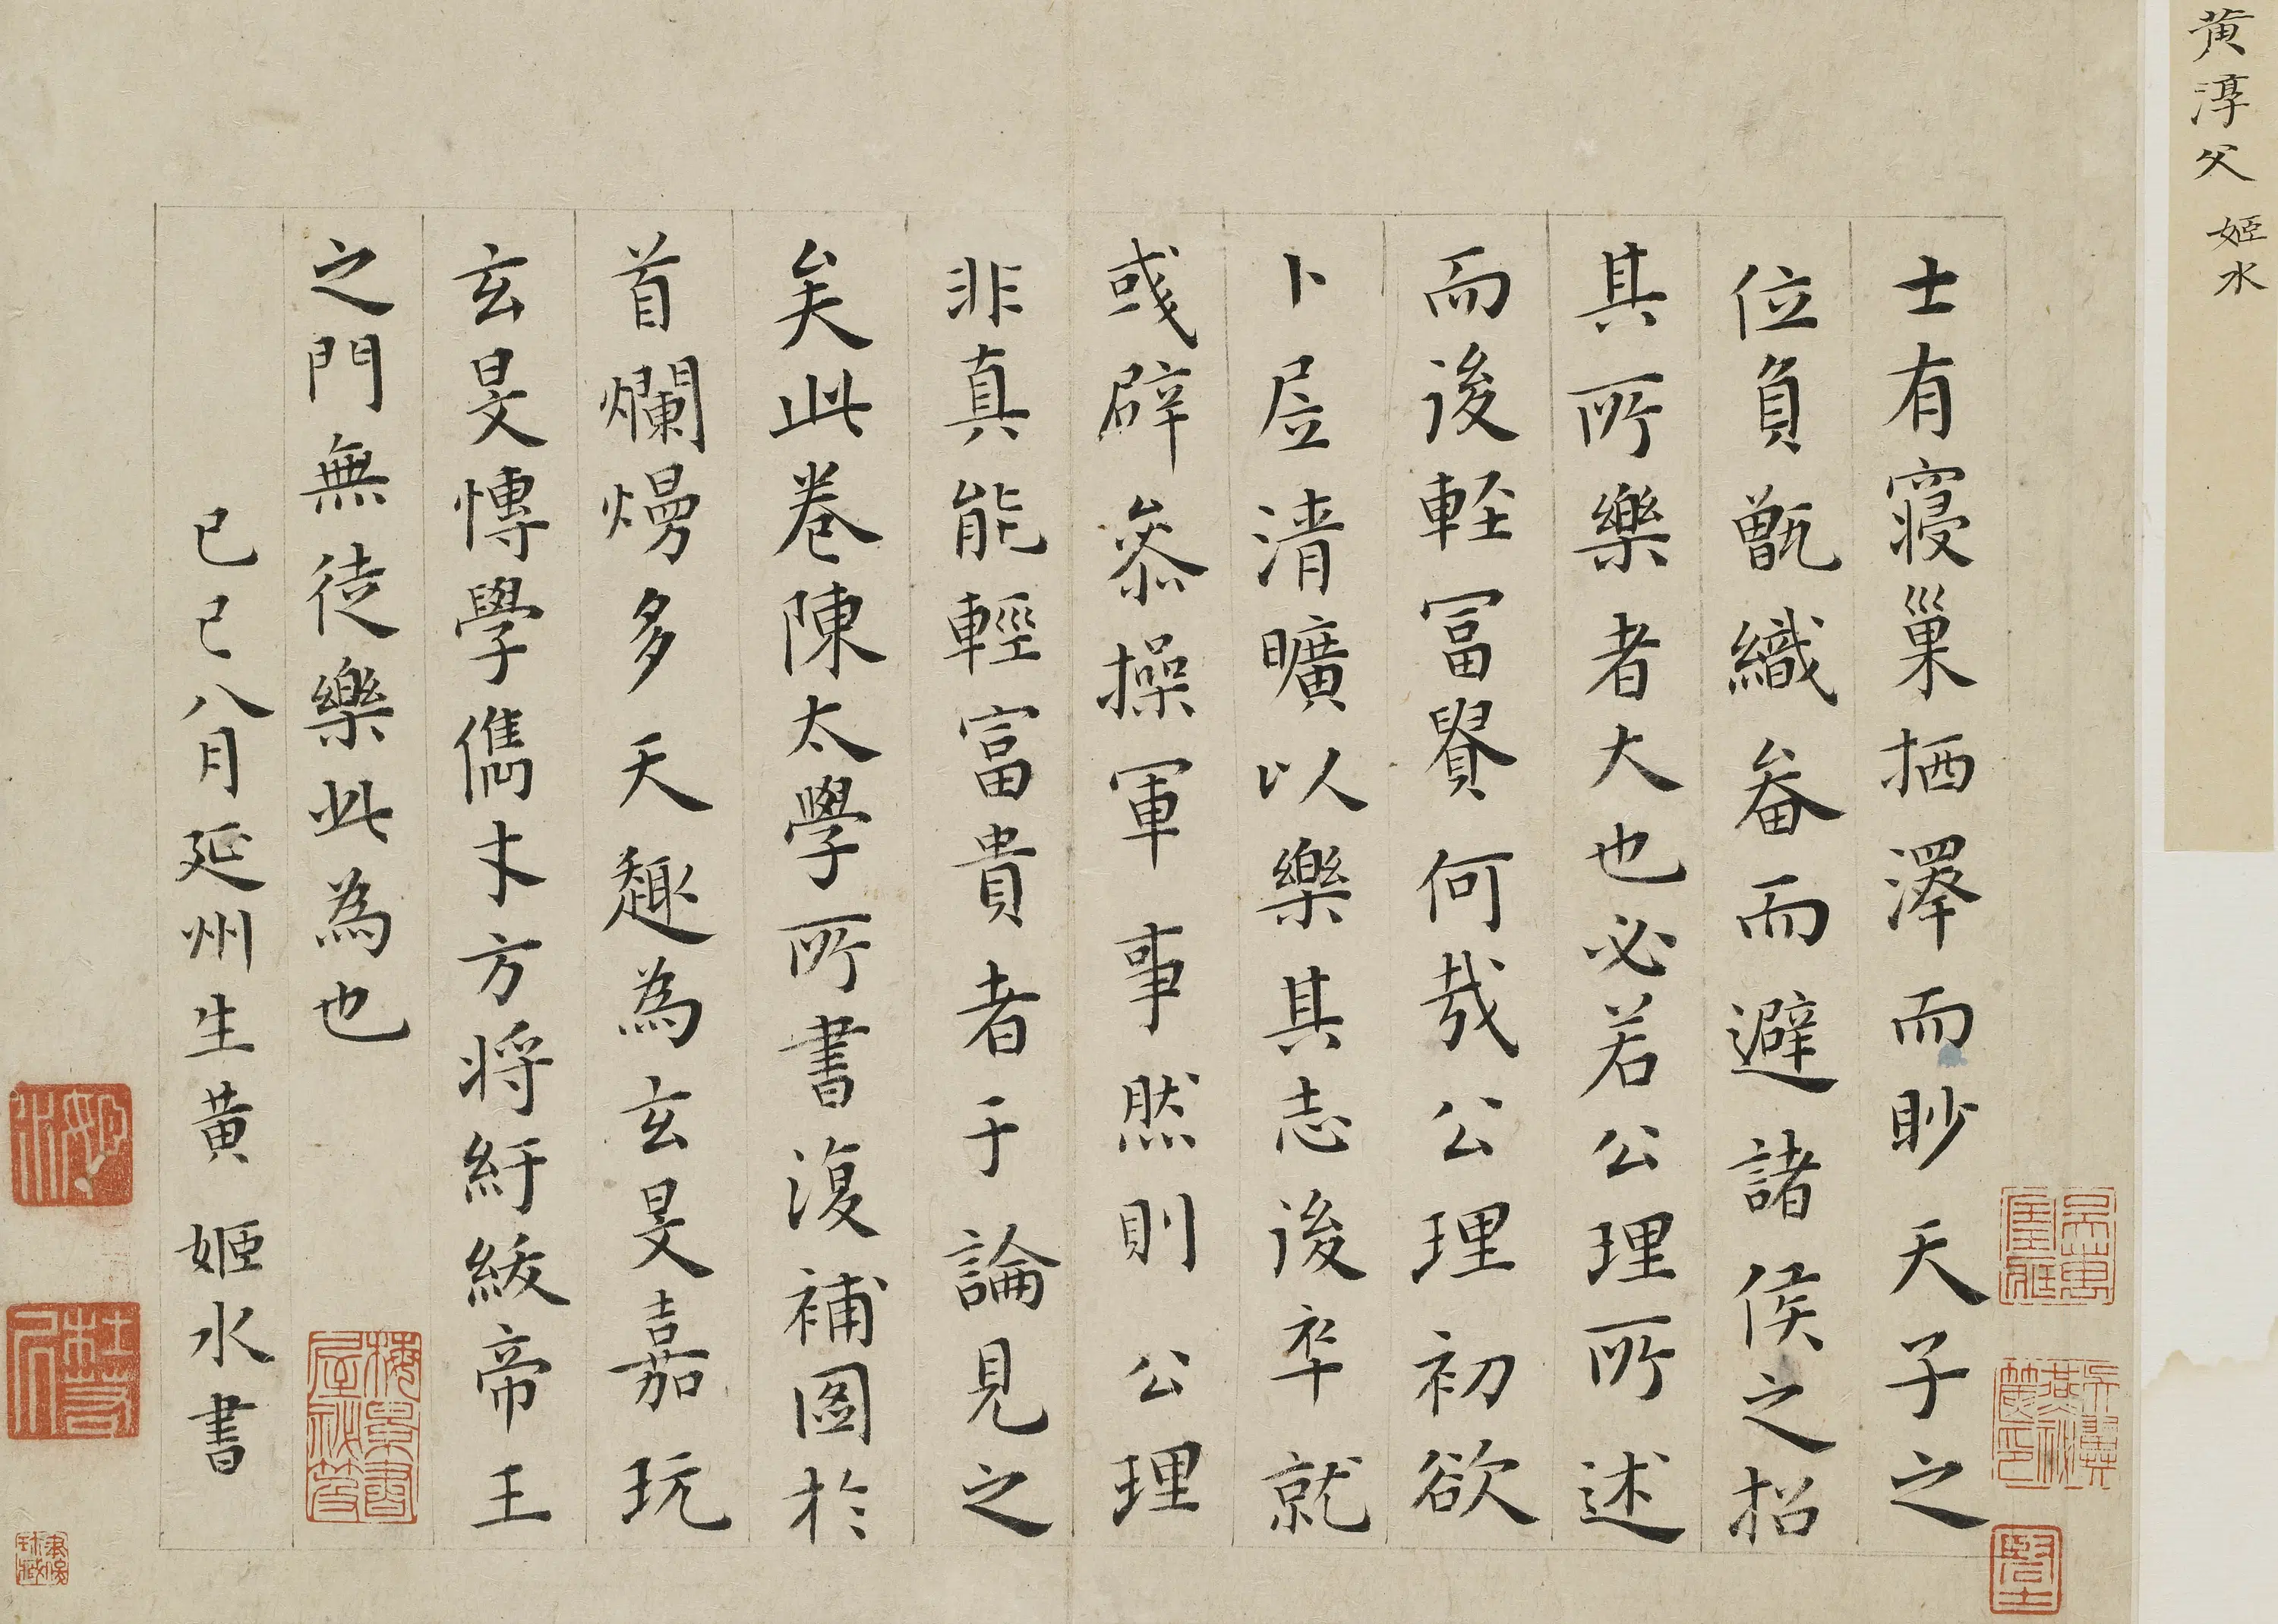 黄淳父 姬水
士有寢巢栖澤而眇天子之
位負甑織畚而避諸侯之招
其所樂者大也必若公理所述
而後軽冨貴何哉公理初欲
卜居清曠以樂其志後卒就
彧辟叅操軍事然則公理
非真能輕富貴者于論見之
矣此卷陳太學所書復補圖於
首爛熳多天趣為玄旻嘉玩
玄旻博學儁才方将紆綬帝王
之門無徒樂此為也
己巳八月延州生黄姬水書
姬水